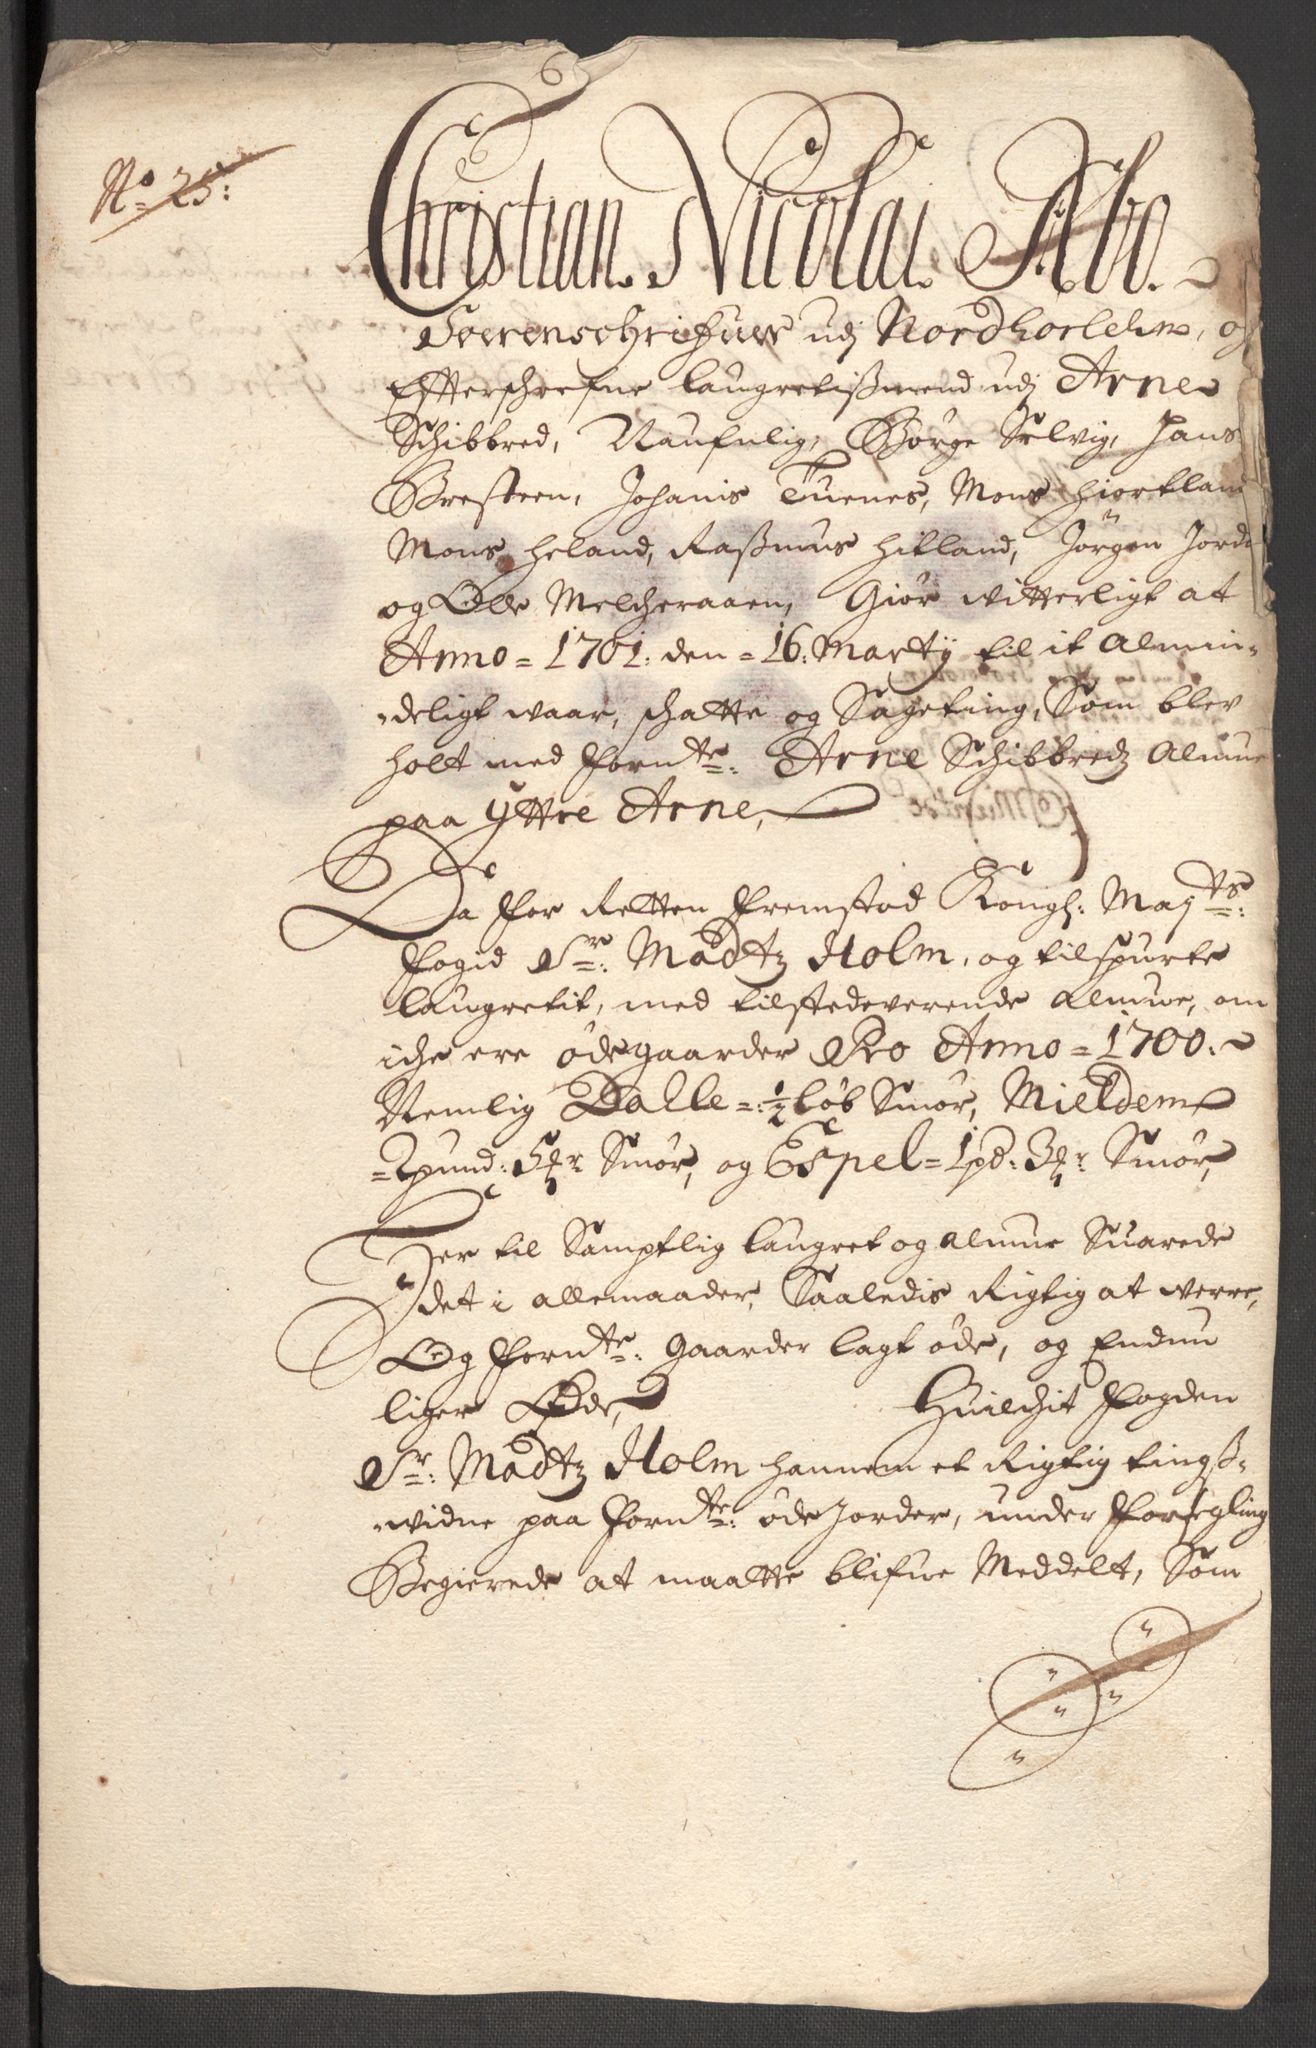 No 25:
Christian Nicolai Abo.
Soerenschrifuer udj Nordhorlehn, og
Effterschrefne laugrettißmend udj Arne
Schibbred, Naufnlig, Børge Selvig, Hans
Bresteen, Johanis Tuenes, Mons Hiortland
Mons Heland, Raßmus Hitland, Jørgen Jorda
og Ole Melcheraaen, Giør witterligt at
Anno = 1701: den = 16: Martij til it Almin-
deligt waar, schatte og Sageting, Som blev
holt med fornte: Arne Schibbredz Almue
paa Yttre Arne,
Da for Retten fremstod Kongl: Majts:
fogid Sr: Madtz Holm, og tilspurte
laugrettit, med tilstedeverende Almue, om
iche ere ødegaarder Pro Anno = 1700.
Nemlig Dalle =: ½ løb Smør, Mieldem
= 2pund: 5 mr Smør, og Espel = 1 pd: 3 mr Smør,
Der til Samptlig laugret og Almue Suarede
det i allemaader, Saaledis Rigtig at werre,
Og fornte: gaarder lagt øde, og Endnu
liger Øde, Huilchit fogden
Sr: Madtz Holm hannem et Rigtig tingß-
widne paa fornte: øde Jorder, under forsegling
Begierede at maatte blifue Meddelt, Som